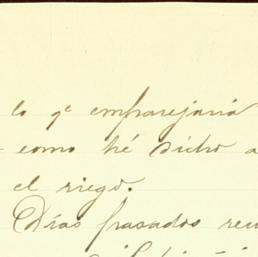 lo qe emparejaría
como hé dicho a
el riego.
Días pasados reci